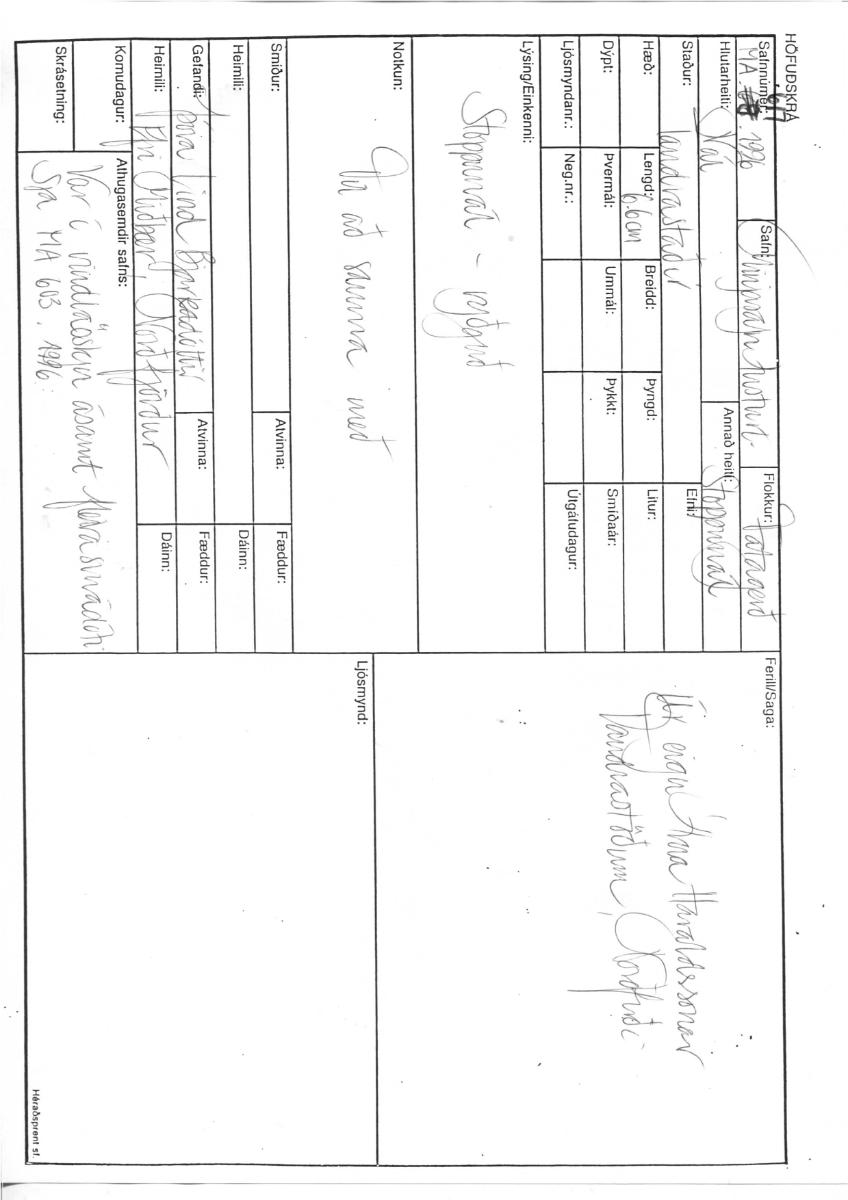 HÖFUÐSKRÁ
Safnnúmer: MA. 617. 1996
Safn: Minjasafn Austurl.
Flokkur: Fatagerð
Hlutarheiti: Nál
Annað heiti: Stoppunál
Staður: Landrastaðir
Efni:
Hæð:
Lengd: 6.6cm
Breidd:
Þyngd:
Litur:
Dýpt:
Þvermál:
Ummál:
Þykkt:
Smíðaár:
Ljósmyndanr.:
Neg.nr.:
Útgáfudagur:
Lýsing/Einkenni:
Stoppunál - ryðguð
Notkun:
Til að sauma með
Smiður:
Atvinna:
Fæddur:
Heimili:
Dáinn:
Gefandi: Þóra Lind Bjarkadóttir
Atvinna:
Fæddur:
Heimili: Efri Miðbær, Norðfjörður
Dáinn:
Komudagur:
Athugasemdir safns:
Var í vindlaöskju ásamt fleira smádóti
Sjá MA 603. 1996.
Skrásetning:
Ferill/Saga:
Úr eigu Árna Haraldssonar
Landrastöðum, Norðfirði
Ljósmynd:
Héraðsprent sf.